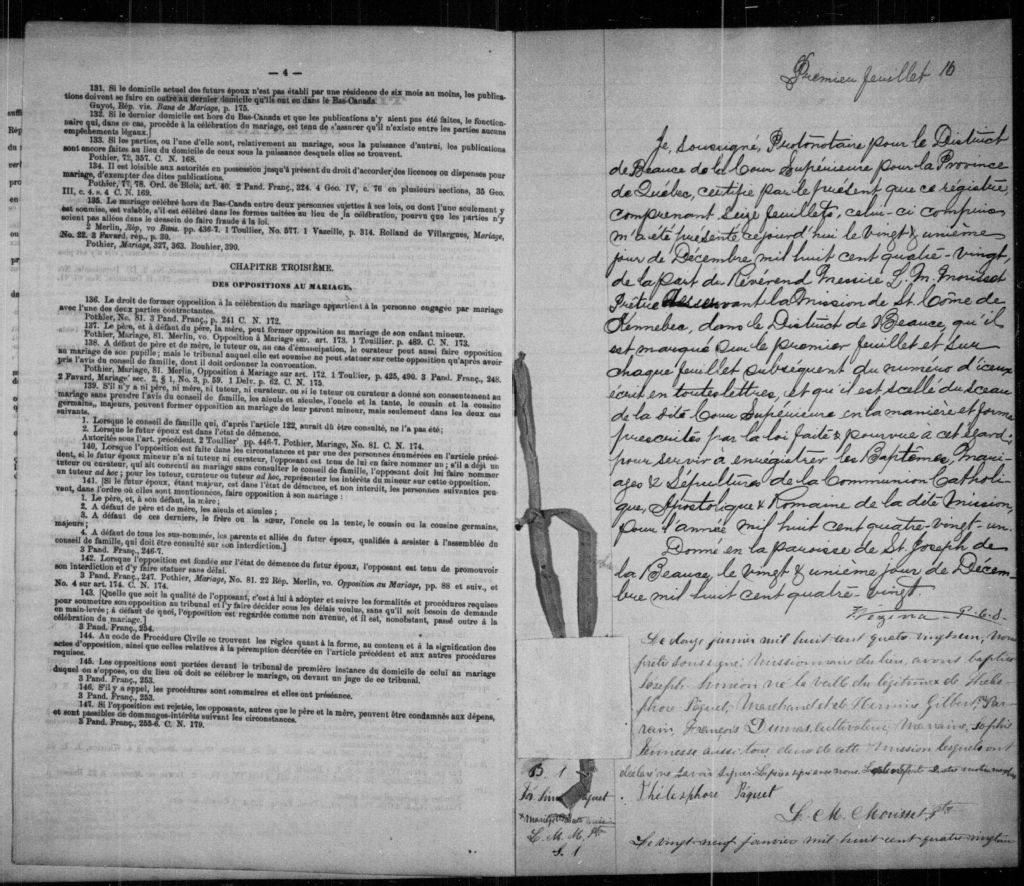 — 4 —
131. Si le domicile actuel des futurs époux n'est pas établi par une résidence de six mois au moins, les publica-
tions doivent se faire en outre au dernier domicile qu'ils ont eu dans le Bas-Canada.
Guyot, Rép. vis. Bans de Mariage, p. 175.
132. Si le dernier domicile est hors du Bas-Canada et que les publications n'y aient pas été faites, le fonction-
naire qui, dans ce cas, procède à la célébration du mariage, est tenu de s'assurer qu'il n'existe entre les parties aucuns
empêchements légaux.]
133. Si les parties, ou l'une d'elle sont, relativement au mariage, sous la puissance d'autrui, les publications
sont encore faites au lieu du domicile de ceux sous la puissance desquels elles se trouvent.
Pothier, 72, 357. C. N. 168.
134. Il est loisible aux autorités en possession jusqu'à présent du droit d'accorder des licences ou dispenses pour
mariage, d'exempter des dites publications.
Pothier, 77, 78. Ord. de Blois, art. 40. 2 Pand. Franç., 324. 4 Geo. IV, c. 76 en plusieurs sections, 35 Geo.
III, c. 4. s. 4 C. N. 169.
135. Le mariage célébré hors du Bas-Canda entre deux personnes sujettes à ses lois, ou dont l'une seulement y
est soumise, est valable, s'il est célébré dans les formes usitées au lieu de la célébration, pourvu que les parties n'y
soient pas allées dans le dessein de faire fraude à la loi.
2 Merlin, Rép, vo Bans. pp. 436-7. 1 Toullier, No. 577. 1 Vazeille, p. 314. Rolland de Villargues, Mariage,
No. 22. 3 Favard, rép., p. 30.
Pothier, Mariage, 327, 363. Bouhier, 390.
CHAPITRE TROISIÈME.
DES OPPOSITIONS AU MARIAGE.
136. Le droit de former opposition à la célébration du mariage appartient à la personne engagée par mariage
avec l'une des deux parties contractantes.
Pothier, No. 81. 3 Pand. Franç., p. 241 C. N. 172.
137. Le père, et à défaut du père, la mère, peut former opposition au mariage de son enfant mineur.
Pothier, Mariage, 81. Merlin, vo. Opposition à Mariage sur. art. 173. 1 Touillier. p. 489. C. N. 173.
138. A défaut de père et de mère, le tuteur ou, au cas d'émancipation, le curateur peut aussi faire opposition
au mariage de son pupille; mais le tribunal auquel elle est soumise ne peut statuer sur cette opposition qu'après avoir
pris l'avis du conseil de famille, dont il doit ordonner la convocation.
Pothier, Mariage, 81. Merlin, Opposition à Mariage sur art. 172. 1 Toullier, p. 425, 490. 3 Pand. Franç., 248.
2 Favard, Mariage sec. 2, § 1, No. 3, p. 59. 1 Delv. p. 62. C. N. 175.
139. S'il n'y a ni père, ni mère, ni tuteur, ni curateur, ou si le tuteur ou curateur a donné son consentement au
mariage sans prendre l'avis du conseil de famille, les aïeuls et aïeules, l'oncle et la tante, le cousin et la cousine
germains, majeurs, peuvent former opposition au mariage de leur parent mineur, mais seulement dans les deux cas
suivants.
1. Lorsque le conseil de famille qui, d'après l'article 122, aurait dû être consulté, ne l'a pas été;
2. Lorsque le futur époux est dans l'état de démence.
Autorités sous l'art. précédent. 2 Toullier' pp. 446-7. Pothier, Mariage, No. 81. C. N. 174.
140. Lorsque l'opposition est faite dans les circonstances et par une des personnes énumérées en l'article précé-
dent, si le futur époux mineur n'a ni tuteur ni curateur, l'opposant est tenu de lui en faire nommer un; s'il a déjà un
tuteur ou curateur, qui ait concouru au mariage sans consulter le conseil de famille, l'opposant doit lui faire nommer
un tuteur ad hoc; pour les tuteur, curateur ou tuteur ad hoc, représenter les intérêts du mineur sur cette opposition.
141. [Si le futur époux, étant majeur, est dans l'état de démence, et non interdit, les personnes suivantes peu-
vent, dans l'ordre où elles sont mentionnées, faire opposition à son mariage:
1. Le père, et, à son défaut, la mère;
2. A défaut de père et de mère, les aïeuls et aïeules;
3. A défaut de ces derniers, le frère ou la sœur, l'oncle ou la tente, le cousin ou la cousine germains,
majeurs;
4. A défaut de tous les sus-nommés, les parents et alliés du futur époux, qualifiés à assister à l'assemblée du
conseil de famille, qui doit être consulté sur son interdiction.]
3 Pand. Franç., 246-7.
142. Lorsque l'opposition est fondée sur l'état de démence du futur époux, l'opposant est tenu de promouvoir
son interdiction et d'y faire statuer sans délai.
3 Pand. Franç., 247. Pothier, Mariage, No. 81. 22 Rép. Merlin, vo. Opposition au Mariage, pp. 88 et suiv., et
No. 4 sur art. 174. C. N. 174.
143. [Quelle que soit la qualité de l'opposant, c'est à lui à adopter et suivre les formalités et procédures requises
pour soumettre son opposition au tribunal et l'y faire décider sous les délais voulus, sans qu'il soit besoin de demande
en main-levée; à défaut de quoi, l'opposition est regardée comme non avenue, et il est, nonobstant, passé outre à la
célébration du mariage.]
3 Pand. Franç., 254.
144. Au code de Procédure Civile se trouvent les règles quant à la forme, au contenu et à la signification des
actes d'opposition, ainsi que celles relatives à la péremption décrétée en l'article précédent et aux autres procédures
requises.
145. Les oppositions sont portées devant le tribunal de première instance du domicile de celui au mariage
duquel on s'oppose, ou du lieu où doit se célébrer le mariage, ou devant un juge de ce tribunal.
3 Pand. Franç., 253.
146. S'il y a appel, les procédures sont sommaires et elles ont préséance.
3 Pand. Franç., 253.
147. Si l'opposition est rejetée, les opposants, autres que le père et la mère, peuvent être condamnés aux dépens,
et sont passibles de dommages-intérêts suivant les circonstances.
3 Pand. Franç., 255-6. C. N. 179.
Premier feuillet 16
Je, soussigné, Protonotaire pour le District
de Beauce de la Cour Supérieure pour la Province
de Québec, certifie par le présent que ce régistre
comprenant seize feuillets, celui-ci compris
m'a été présenté ce jourd'hui le vingt & unième
jour de Décembre mil huit cent quatre-vingt,
de la part de Révérend Messire L. M. Morisset
Prêtre desservant la Mission de St Côme de
Kennebec, dans le District de Beauce, qu'il
est marqué sur le premier feuillet et sur
chaque feuillet subséquent du numéro d'iceux
écrit en toutes lettres, et qu'il est scellé du sceau
de la dite Cour Supérieure en la manière et forme
prescrites par la loi faite & pourvue à cet égard;
pour servir à enrégistrer les Baptêmes, Mari-
ages & Sépultures de la Communion Catholi-
que, Apostolique & Romaine de la dite Mission,
pour l'année mil huit cent quatre-vingt-un.
Donné en la paroisse de St Joseph de
la Beauce, le vingt & unième jour de Décem-
bre mil huit cent quatre-vingt.
Vézina P.C.S.
B 1
Jos. Siméon Paquet
L. M. M. Ptre
S. 1
Le douze janvier mil huit cent quatre vingt un, nous
prêtre soussigné missionnaire du lieu, avons baptisé
Joseph-Siméon né la veille du légitime de Théles-
phore Paquet, Marchand et de Hermine Gilbert. Par-
rain François Dumas, cultivateur, Marraine, Sophie
Jeunesse aussi tous deux de cette mission lesquels ont
déclaré ne savoir signer. Le père a signé avec nous.
Thélesphore Paquet
L. M. Morisset Ptre
Le vingt neuf janvier mil huit cent quatre vingt un